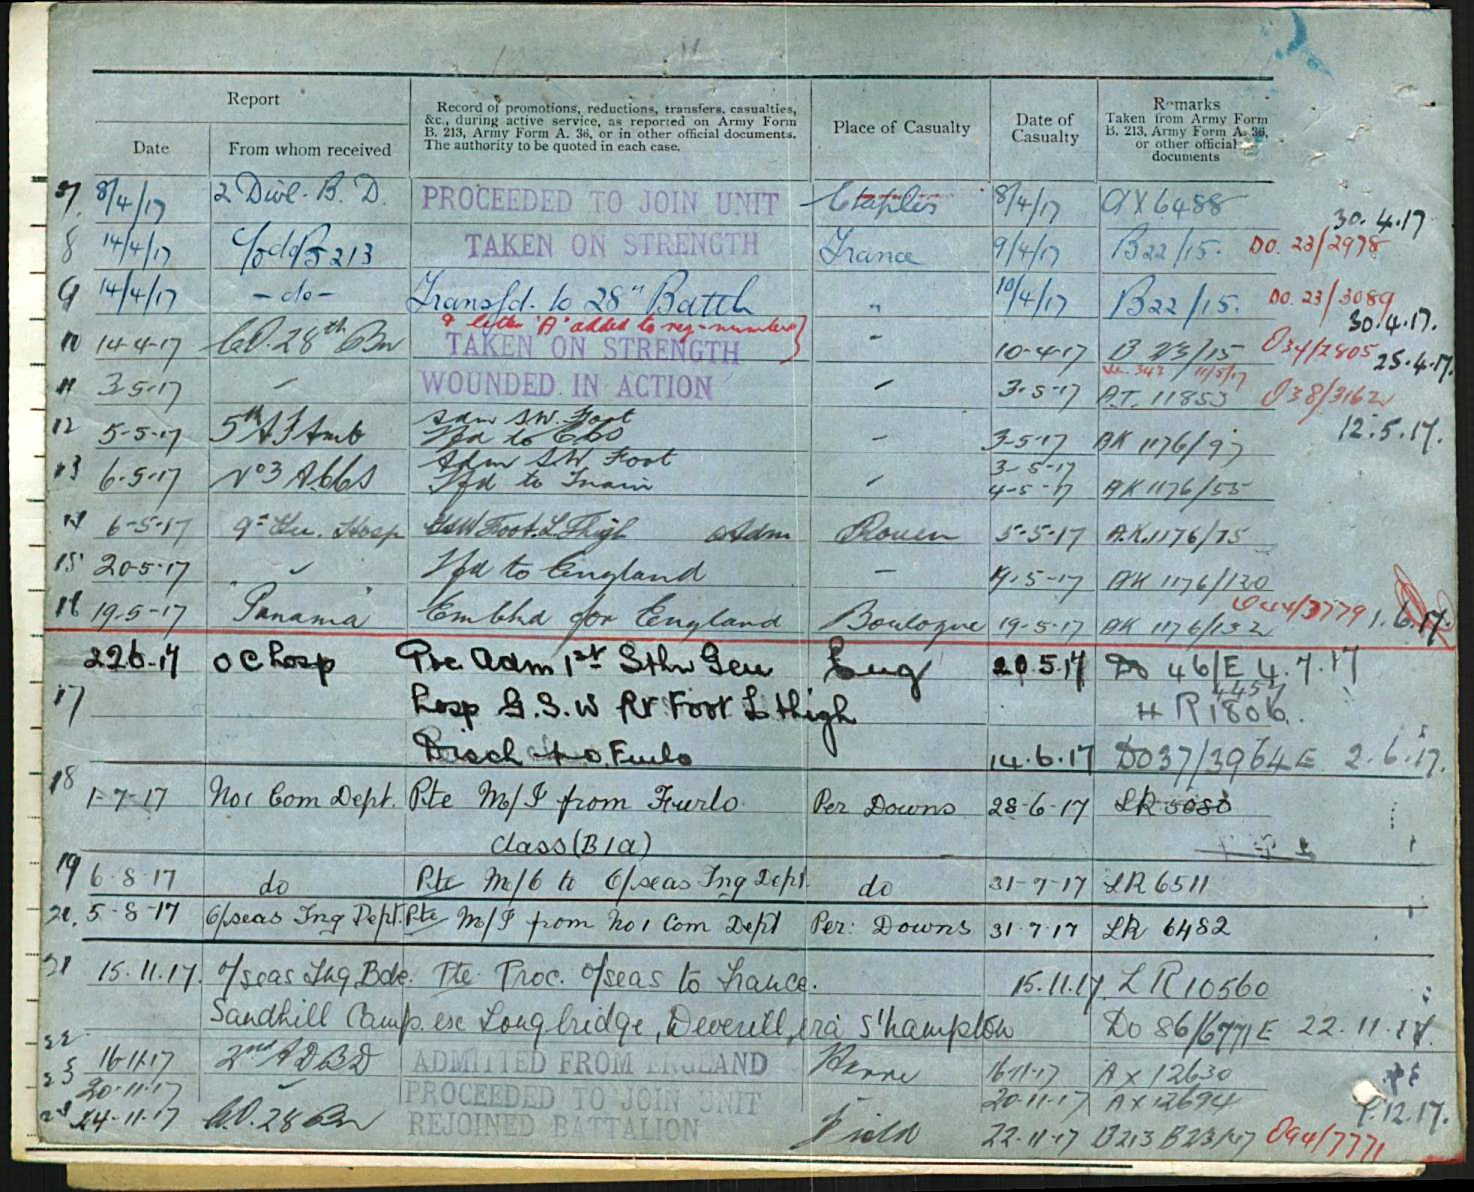 Report
Record of promotions, reductions, transfers, casualties, &c., during active service, as reported on Army Form B. 213, Army Form A. 36, or in other official documents. The authority to be quoted in each case.
Place of Casualty
Date of Casualty
Remarks
Taken from Army Form B. 213, Army Form A. 36, or other official documents
Date
From whom received
7 8/4/17 2 Divl. B. D. PROCEEDED TO JOIN UNIT Etaples 8/4/17 AX 6488
30.4.17
8 14/4/17 213 TAKEN ON STRENGTH France 9/4/17 B22/15. DO. 23/2978
9 14/4/17 -do- Transfd. to 28" Battn " 10/4/17 B22/15. DO. 23/3089
& letter 'A' added to reg-number 30.4.17.
10 14-4-17 CO. 28th Bn TAKEN ON STRENGTH " 10-4-17 B 23/15 O34/2805 25.4.17.
343 11/5/17
11 3-5-17 WOUNDED IN ACTION 3-5-17 A.T. 11853 O38/3162
12.5.17.
12 5-5-17 5th A F Amb Adm SW. Foot
Tfd to CCS 3-5-17 AK 1176/97
13 6-5-17 No 3 ACCS Adm SW Foot 3-5-17
Tfd to Train 4-5-17 AK 1176/55
14 6-5-17 9th Gen. Hosp GSW Foot. L. Thigh Adm Rouen 5-5-17 A.K.1176/75
15 20-5-17 Tfd to England -5-17 AK 1176/120
16 19-5-17 "Panama" Embkd for England Boulogne 19-5-17 AK 1176/132 O44/3779 1.6.17.
22 6-17 OC Hosp Pte Adm 1st Sthn Gen Eng 20.5.17 DO 46/E 4.7.17
4457
17 Hosp G.S.W Rt Foot L thigh H R1806.
Disch to Furlo 14.6.17 DO37/3964E 2.6.17.
18 1-7-17 No1 Com Dept. Pte M/I from Furlo. Per Downs 28-6-17 LR 5080
class (B1a)
19 6-8-17 do Pte M/O to O/seas Tng Dept. do 31-7-17 LR 6511
20. 5-8-17 O/seas Tng Dept. Pte M/I from No1 Com Dept Per: Downs 31-7-17 LR 6482
21 15.11.17. O/seas Tng Bde. Pte Proc. O/seas to France. 15.11.17. LR10560
Sandhill Camp. Longbridge, Deverill, via S'hampton DO 86/6771E 22.11.17.
22 16-11-17 2nd A D B D ADMITTED FROM ENGLAND Havre 16-11-17 AX 12630
23 20-11-17 PROCEEDED TO JOIN UNIT 20-11-17 AX12694
.12.17.
24 24-11-17 CO. 28 Bn REJOINED BATTALION Field 22-11-17 B213 B23/47 O94/7771